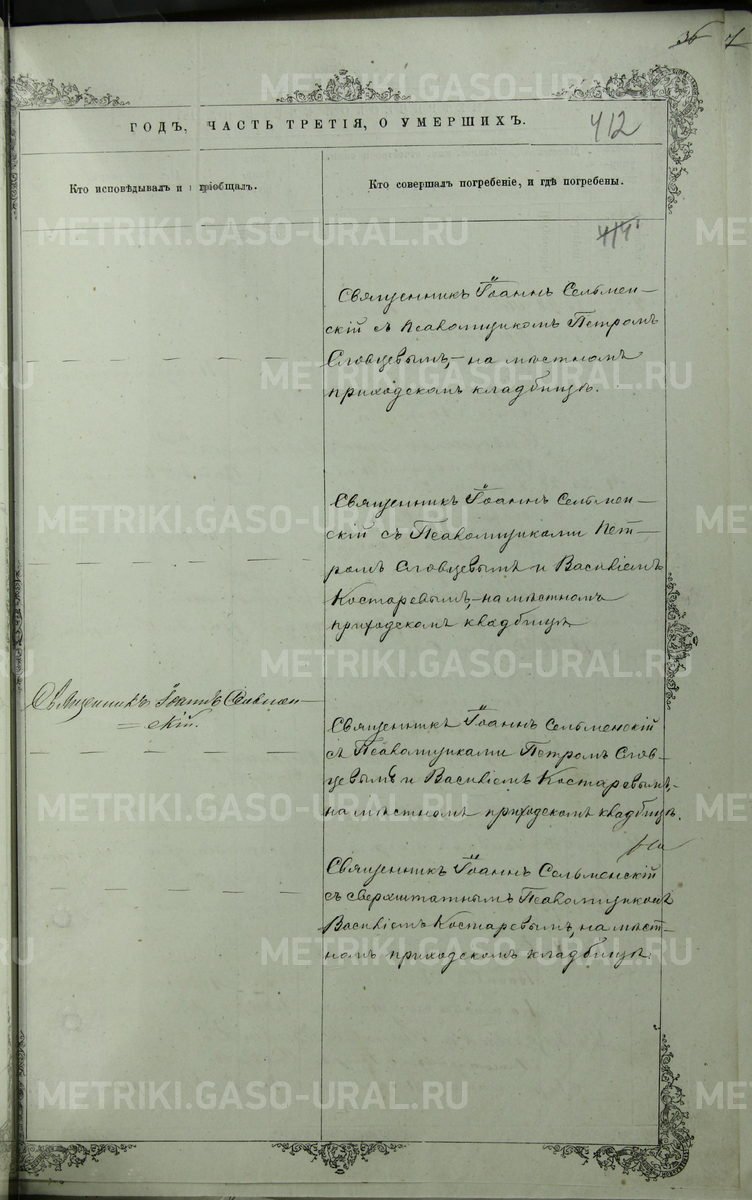 36
412
ГОДЪ, ЧАСТЬ ТРЕТІЯ, О УМЕРШИХЪ.
Кто исповѣдывалъ и пріобщалъ.
Кто совершалъ погребеніе, и гдѣ погребены.
Священникъ Іоаннъ Сельмен-
скій съ Псаломщикомъ Петромъ
Словцевымъ, на мѣстномъ
приходскомъ кладбищѣ.
Священникъ Іоаннъ Сельмен-
скій съ Псаломщиками Пет-
ромъ Словцевымъ и Василіемъ
Костаревымъ, на мѣстномъ
приходскомъ кладбищѣ
Священникъ Іоаннъ Сельмен-
скій.
Священникъ Іоаннъ Сельменскій
съ Псаломщиками Петромъ Слов-
цевымъ и Василіемъ Костаревымъ,
на мѣстномъ приходскомъ кладбищѣ.
Священникъ Іоаннъ Сельменскій
съ сверхштатнымъ Псаломщикомъ
Василіемъ Костаревымъ, на мѣст-
номъ приходскомъ кладбищѣ.
METRIKI.GASO-URAL.RU